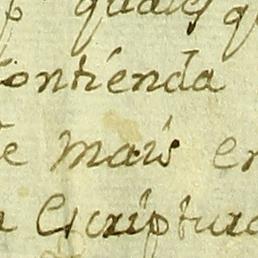 p quales q
contienda
e mais en
a Escriptura